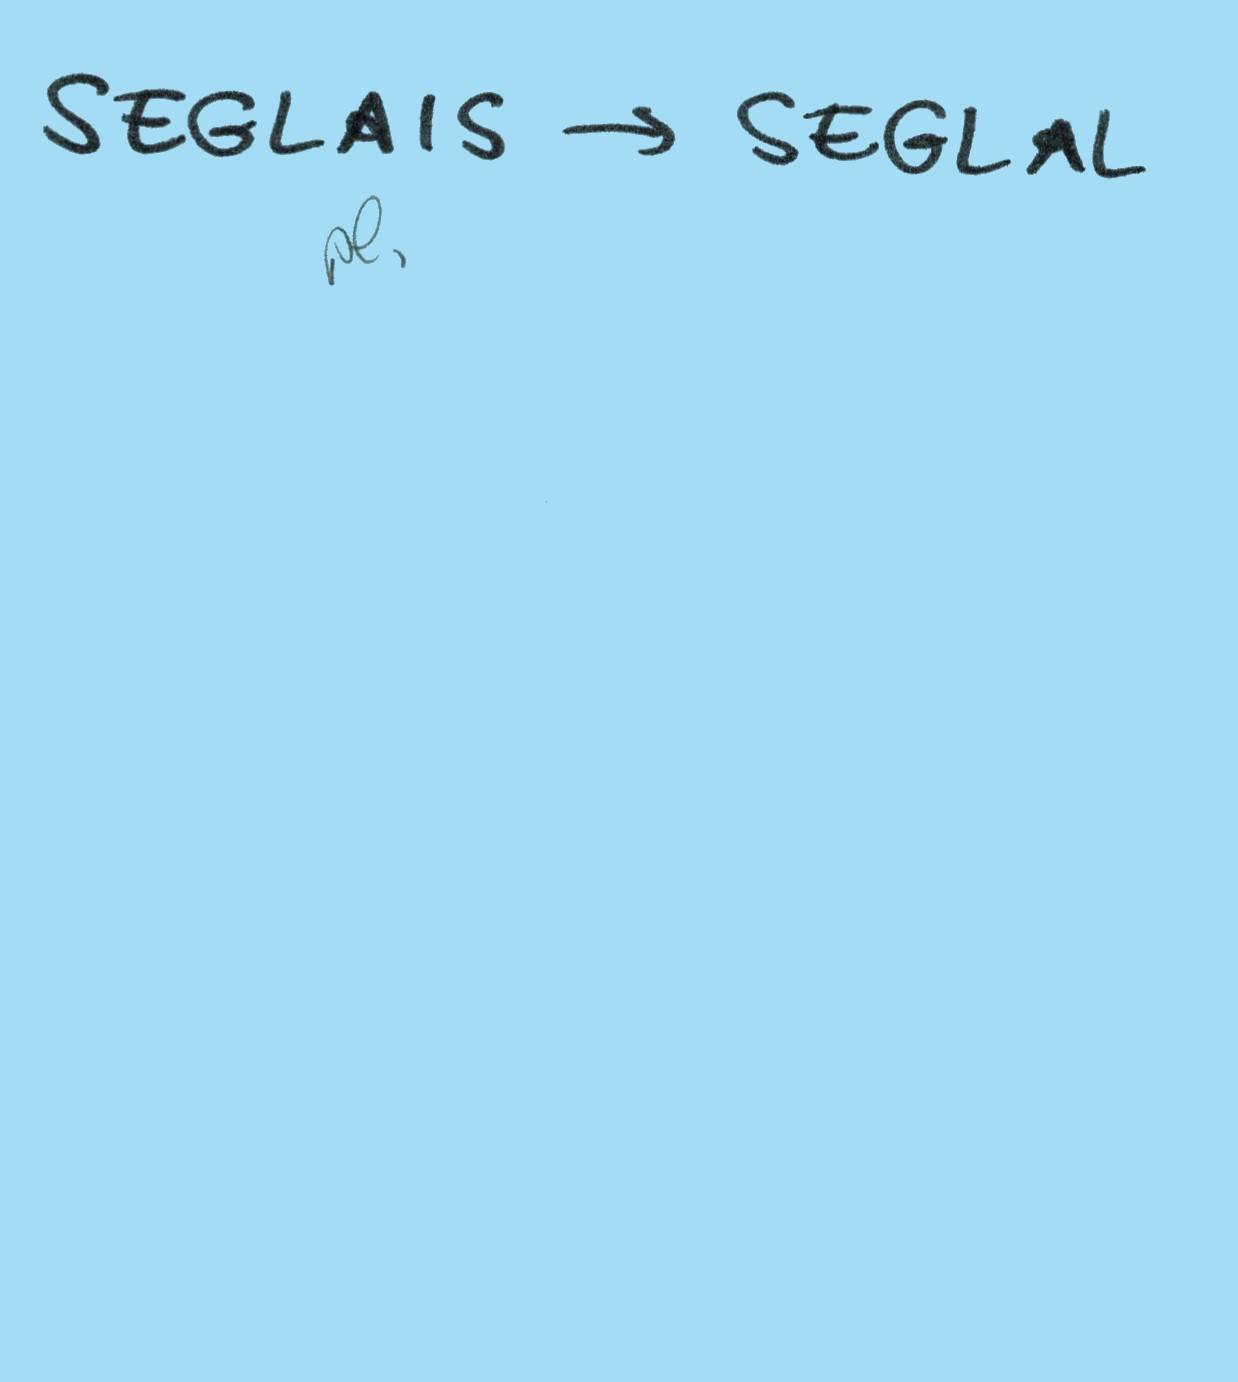 SEGLAIS → SEGLAL
pl.